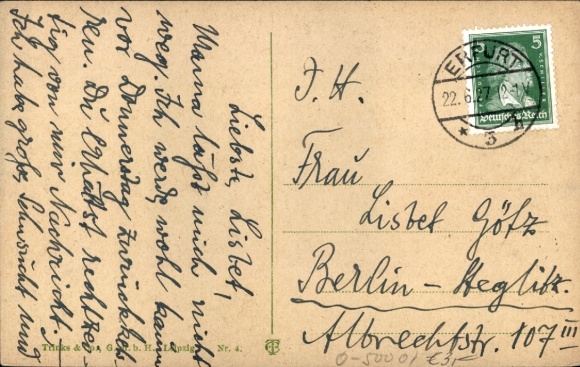 Liebste Lisbet,
Mama läßt mich nicht
weg. Ich werde wohl kaum
vor Donnerstag zurückkeh-
ren. Du erhältst rechtzei-
tig von mir Nachricht.
Ich habe große Sehnsucht und
Trinks & Co., G. m. b. H., Leipzig. Nr. 4.
5
Deutsches Reich
ERFURT
22.6.27. 2-3N
* 3
I. H.
Frau
Lisbet Götz
Berlin-Steglitz.
Albrechtstr. 107 III
0-50001 €3,-